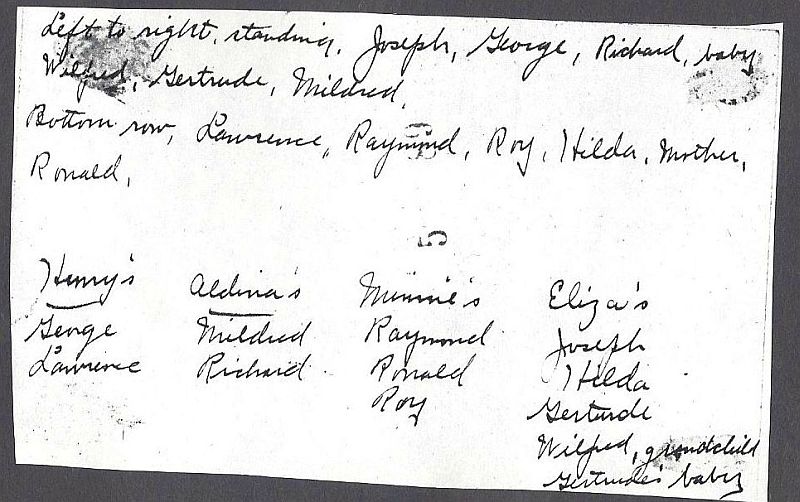 Left to right, standing, Joseph, George, Richard, baby
Wilfred, Gertrude, Mildred,
Bottom row, Lawrence, Raymond, Roy, Hilda, Mother,
Ronald,
5
Henry's Aldina's Minnie's Eliza's
George Mildred Raymond Joseph
Lawrence Richard Ronald Hilda
Roy Gertrude
Wilfred, grandchild
Gertrude's baby